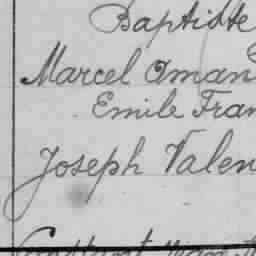 Baptiste
Marcel Aman
Emile Fran
Joseph Valen